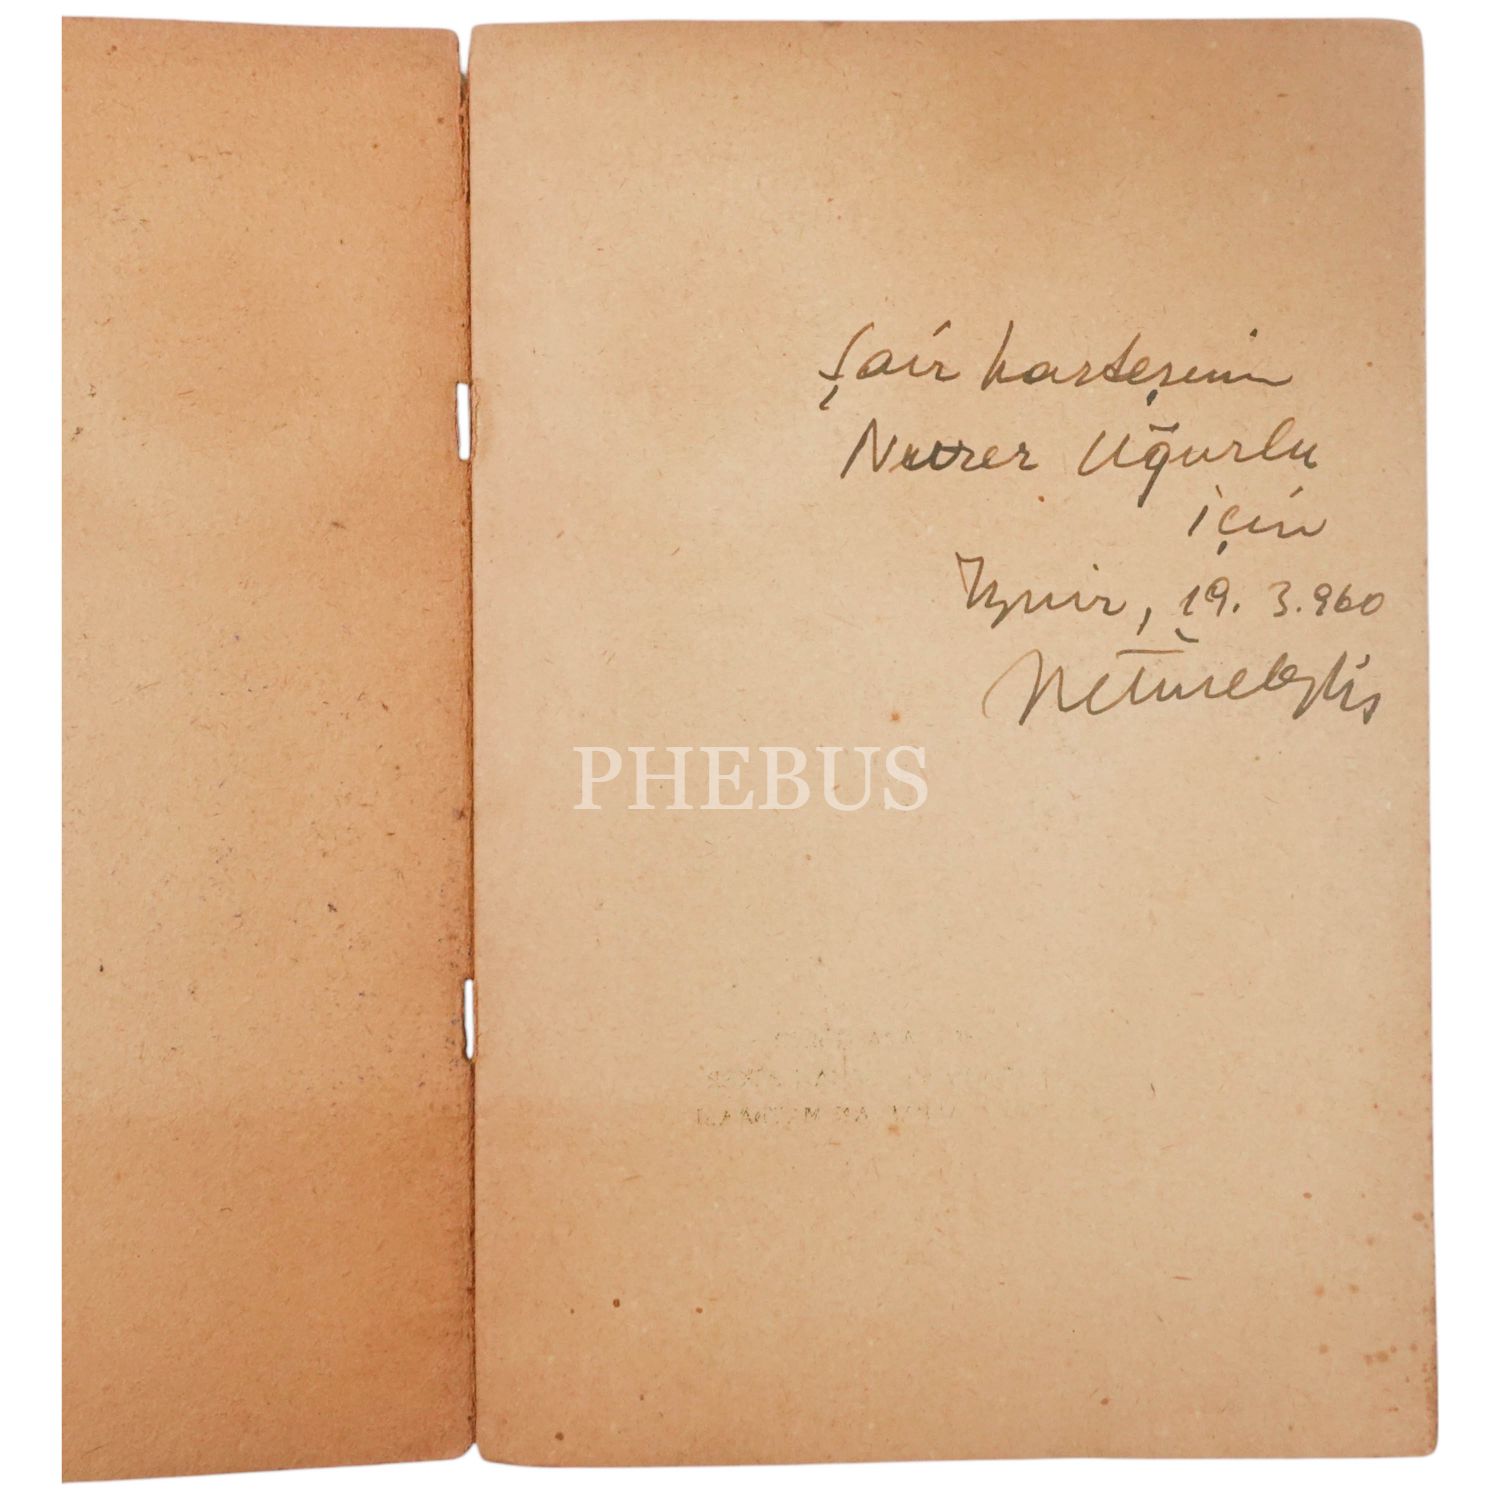 Şair kardeşim
Nurer Uğurlu
için
İzmir, 19. 3. 960
PHEBUS